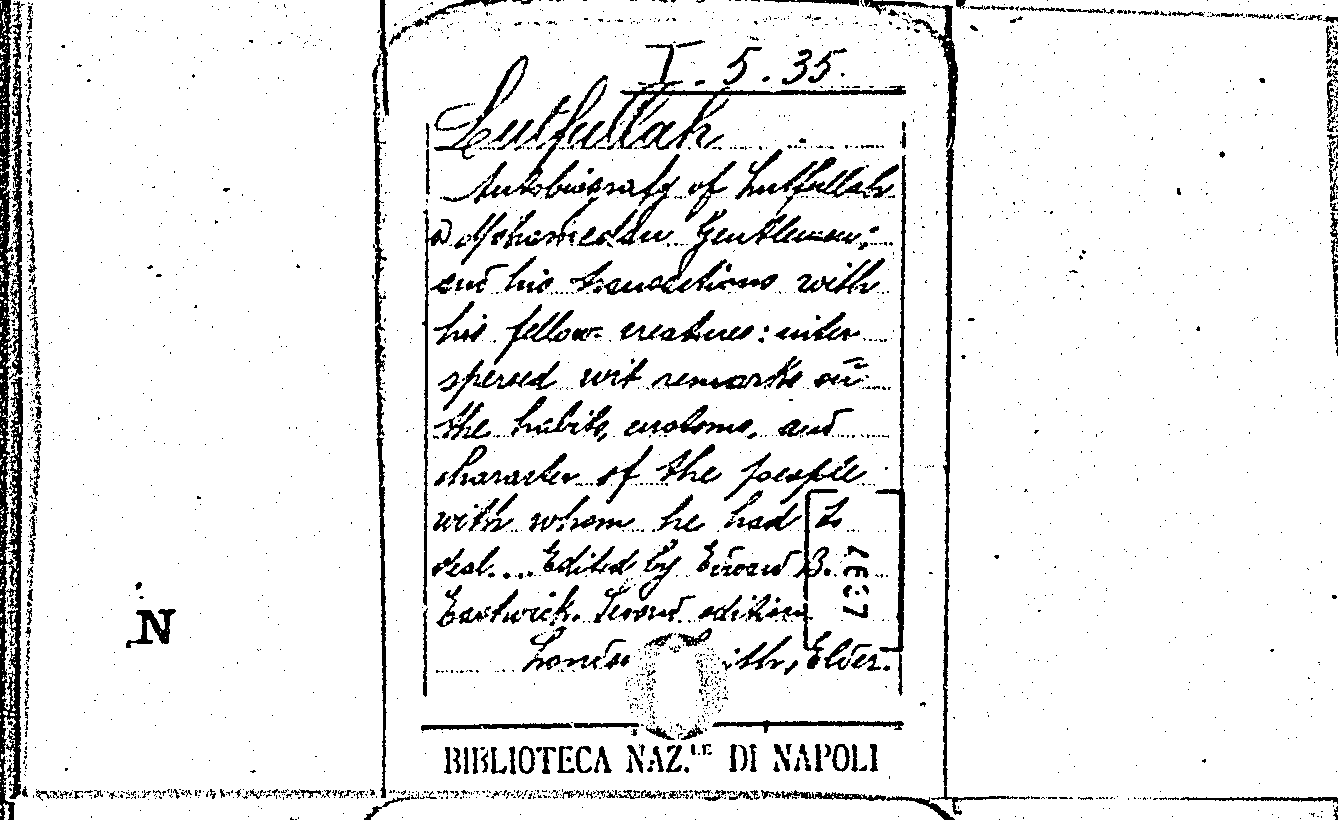 I. 5. 35.
Lutfullah
Autobiografy of Lutfullah
a Mohamedan Gentleman;
and his transactions with
his fellow-creatures: inter
spersed wit remarks on
the habits, customs, and
character of the people
with whom he had to
deal.... Edited by Edward B.
Eastwick. Second edition
London ith, Elder.
N
BIBLIOTECA NAZ.LE DI NAPOLI